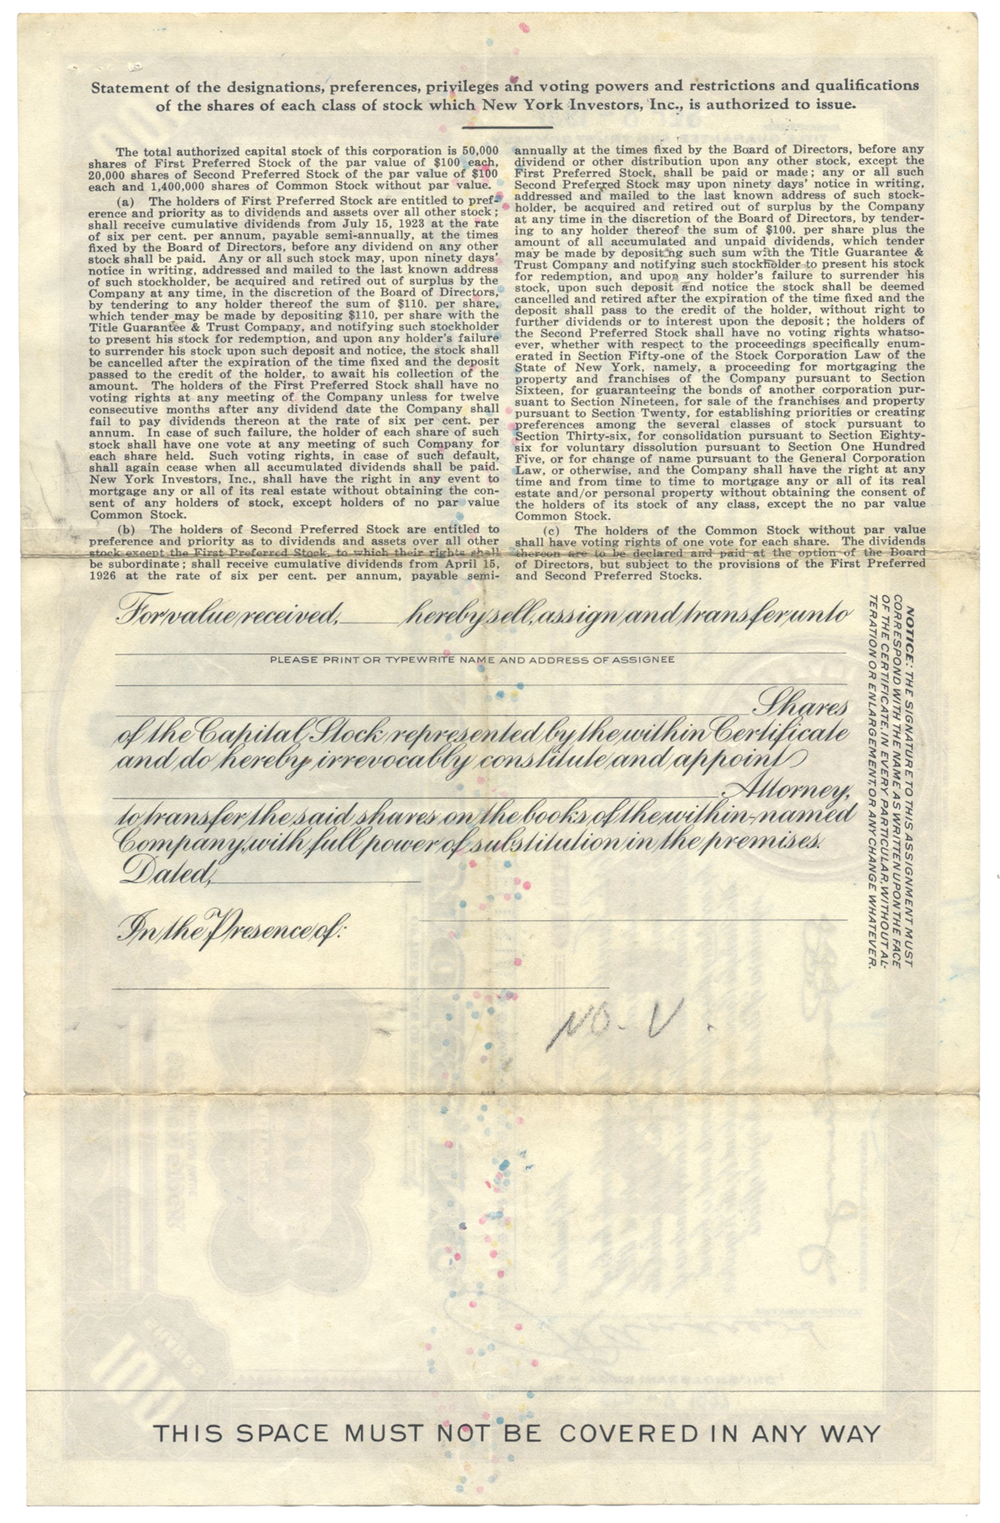 Statement of the designations, preferences, privileges and voting powers and restrictions and qualifications
of the shares of each class of stock which New York Investors, Inc., is authorized to issue.
The total authorized capital stock of this corporation is 50,000
shares of First Preferred Stock of the par value of $100 each,
20,000 shares of Second Preferred Stock of the par value of $100
each and 1,400,000 shares of Common Stock without par value.
(a) The holders of First Preferred Stock are entitled to pref-
erence and priority as to dividends and assets over all other stock;
shall receive cumulative dividends from July 15, 1923 at the rate
of six per cent. per annum, payable semi-annually, at the times
fixed by the Board of Directors, before any dividend on any other
stock shall be paid. Any or all such stock may, upon ninety days'
notice in writing, addressed and mailed to the last known address
of such stockholder, be acquired and retired out of surplus by the
Company at any time, in the discretion of the Board of Directors,
by tendering to any holder thereof the sum of $110. per share,
which tender may be made by depositing $110, per share with the
Title Guarantee & Trust Company, and notifying such stockholder
to present his stock for redemption, and upon any holder's failure
to surrender his stock upon such deposit and notice, the stock shall
be cancelled after the expiration of the time fixed and the deposit
passed to the credit of the holder, to await his collection of the
amount. The holders of the First Preferred Stock shall have no
voting rights at any meeting of the Company unless for twelve
consecutive months after any dividend date the Company shall
fail to pay dividends thereon at the rate of six per cent. per
annum. In case of such failure, the holder of each share of such
stock shall have one vote at any meeting of such Company for
each share held. Such voting rights, in case of such default,
shall again cease when all accumulated dividends shall be paid.
New York Investors, Inc., shall have the right in any event to
mortgage any or all of its real estate without obtaining the con-
sent of any holders of stock, except holders of no par value
Common Stock.
(b) The holders of Second Preferred Stock are entitled to
preference and priority as to dividends and assets over all other
stock except the First Preferred Stock, to which their rights shall
be subordinate; shall receive cumulative dividends from April 15,
1926 at the rate of six per cent. per annum, payable semi-
annually at the times fixed by the Board of Directors, before any
dividend or other distribution upon any other stock, except the
First Preferred Stock, shall be paid or made; any or all such
Second Preferred Stock may upon ninety days' notice in writing,
addressed and mailed to the last known address of such stock-
holder, be acquired and retired out of surplus by the Company
at any time in the discretion of the Board of Directors, by tender-
ing to any holder thereof the sum of $100. per share plus the
amount of all accumulated and unpaid dividends, which tender
may be made by depositing such sum with the Title Guarantee &
Trust Company and notifying such stockholder to present his stock
for redemption, and upon any holder's failure to surrender his
stock, upon such deposit and notice the stock shall be deemed
cancelled and retired after the expiration of the time fixed and the
deposit shall pass to the credit of the holder, without right to
further dividends or to interest upon the deposit; the holders of
the Second Preferred Stock shall have no voting rights whatso-
ever, whether with respect to the proceedings specifically enum-
erated in Section Fifty-one of the Stock Corporation Law of the
State of New York, namely, a proceeding for mortgaging the
property and franchises of the Company pursuant to Section
Sixteen, for guaranteeing the bonds of another corporation pur-
suant to Section Nineteen, for sale of the franchises and property
pursuant to Section Twenty, for establishing priorities or creating
preferences among the several classes of stock pursuant to
Section Thirty-six, for consolidation pursuant to Section Eighty-
six for voluntary dissolution pursuant to Section One Hundred
Five, or for change of name pursuant to the General Corporation
Law, or otherwise, and the Company shall have the right at any
time and from time to time to mortgage any or all of its real
estate and/or personal property without obtaining the consent of
the holders of its stock of any class, except the no par value
Common Stock.
(c) The holders of the Common Stock without par value
shall have voting rights of one vote for each share. The dividends
thereon are to be declared and paid at the option of the Board
of Directors, but subject to the provisions of the First Preferred
and Second Preferred Stocks.
For value received, hereby sell, assign and transfer unto
PLEASE PRINT OR TYPEWRITE NAME AND ADDRESS OF ASSIGNEE
Shares
of the Capital Stock represented by the within Certificate
and do hereby irrevocably constitute and appoint
Attorney,
to transfer the said shares on the books of the within-named
Company, with full power of substitution in the premises.
Dated,
In the Presence of:
NOTICE: THE SIGNATURE TO THIS ASSIGNMENT MUST
CORRESPOND WITH THE NAME AS WRITTEN UPON THE FACE
OF THE CERTIFICATE, IN EVERY PARTICULAR, WITHOUT AL-
TERATION OR ENLARGEMENT, OR ANY CHANGE WHATEVER.
NO. V.
THIS SPACE MUST NOT BE COVERED IN ANY WAY